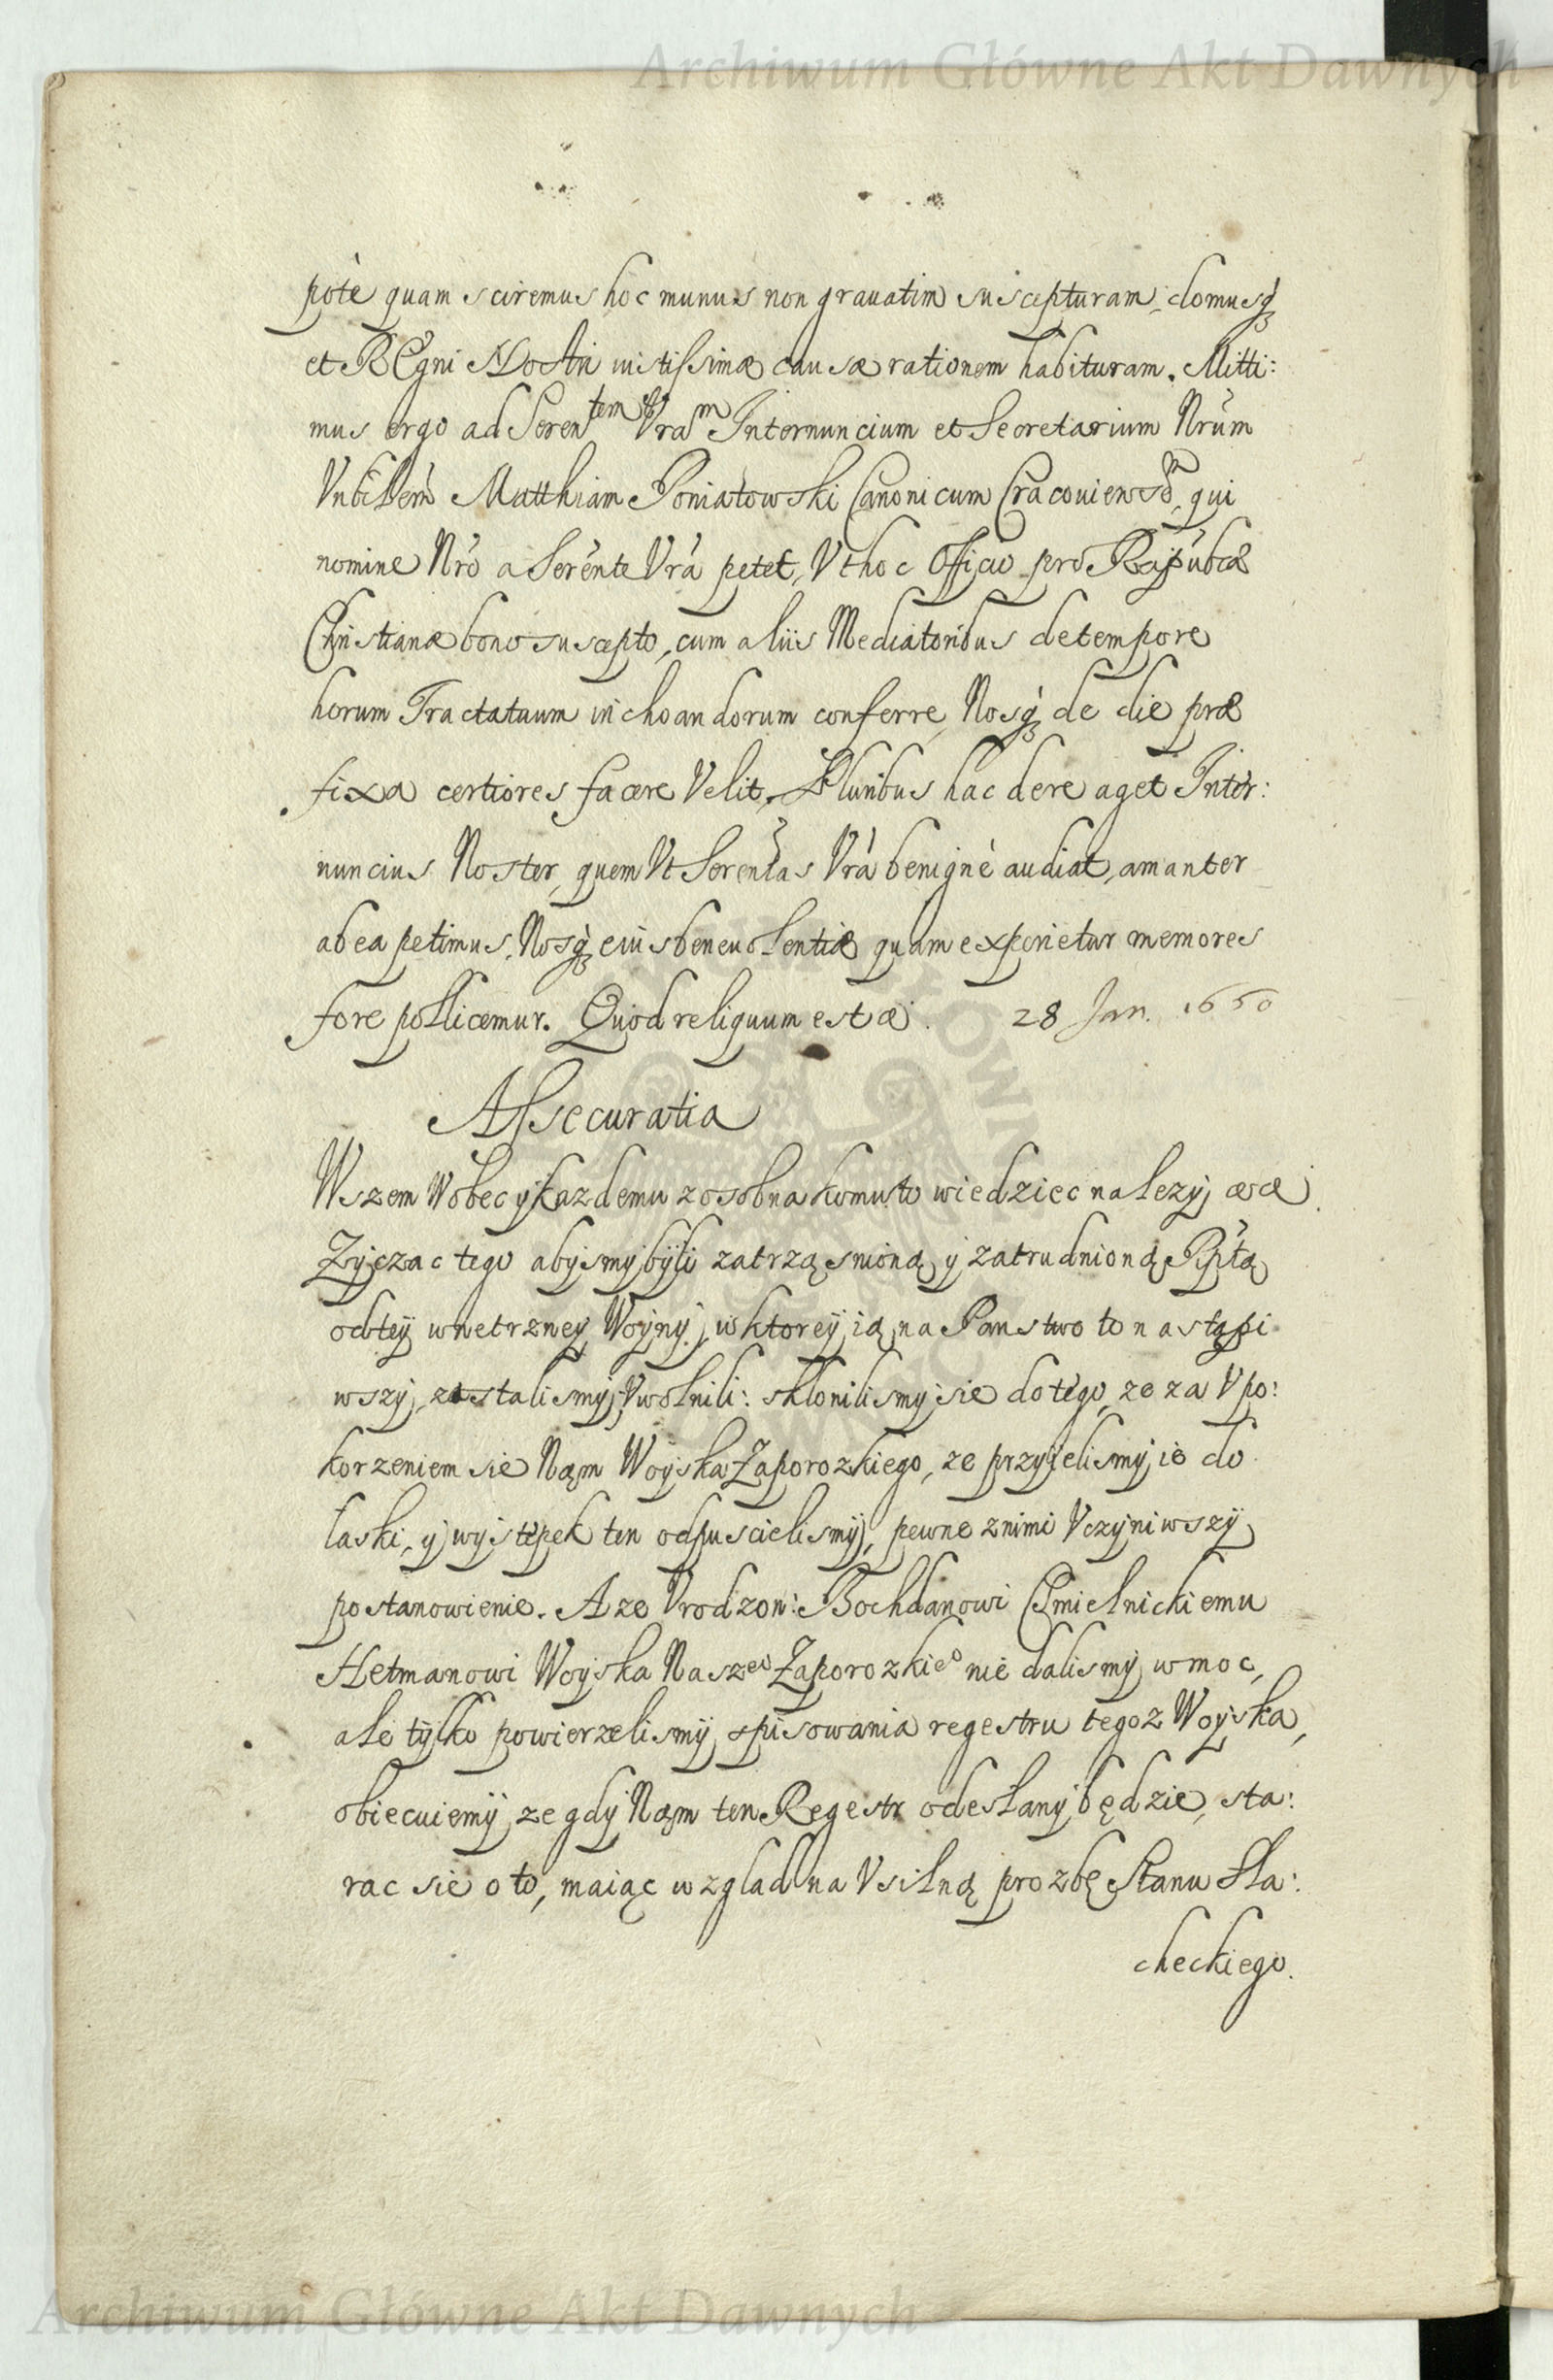 Archiwum Główne Akt Dawnych
pote quam sciremus hoc munus non grauatim suscepturam, domusq̃
et REgni NoStri iustissimæ causæ rationem habituram. Mitti:
mus ergo ad Seren^tem Vra^m Internuncium et Secretarium Nrũm
Vnbilem Matthiam Poniatowski Canonicum Cracouiensẽ^m, qui
nomine Nrõ a Serẽnte Vrã petet, Vt hoc Officio pro Reipubcæ
Christianæ bono suscepto, cum aliis Mediatoribus de tempore
horum Tractatuum inchoandorum conferre, Nosq̃ de die præ
fixa certiores facere Velit. Pluribus hac de re aget Inter:
nuncius Noster, quem Vt Serentas Vrã benignè audiat, amanter
ab ea petimus. Nosq̃ eius beneuolentiæ quam experietur memores
fore pollicemur. Quod reliquum est æ. 28 Jan. 1650
Assecuratia
Wszem Wobec y kazdemu zosobna komu to wiedziec nalezy æcæ.
Zyczac tego abysmy byli zatrząsnioną y zatrudnioną Rptą
od tey wnetrzney Woyny, w ktorey ią na Panstwo to nastąpi
wszy, zostalismy, Vwolnili: sklonilismy sie do tego, ze za Vpo:
korzeniem sie Nąm Woyska Zaporozkiego, ze przyjelismy ie do
łaski, y wystepek ten odpuscielismy, pewne znimi Vczyniwszy
postanowienie. A ze Vrodzon: Bochdanowi Chmielnickiemu
Hetmanowi Woyska Nasze^o Zaporozkie^o nie dalismy w moc,
ale tylko powierzelismy spisowania regestru tegoz Woyska,
obiecuiemy, ze gdy Nąm ten Regestr odesłany będzie, sta:
rac sie o to, maiąc wzglad na Vsilną prozbę Stanu Sla:
checkiego.
Archiwum Główne Akt Dawnych